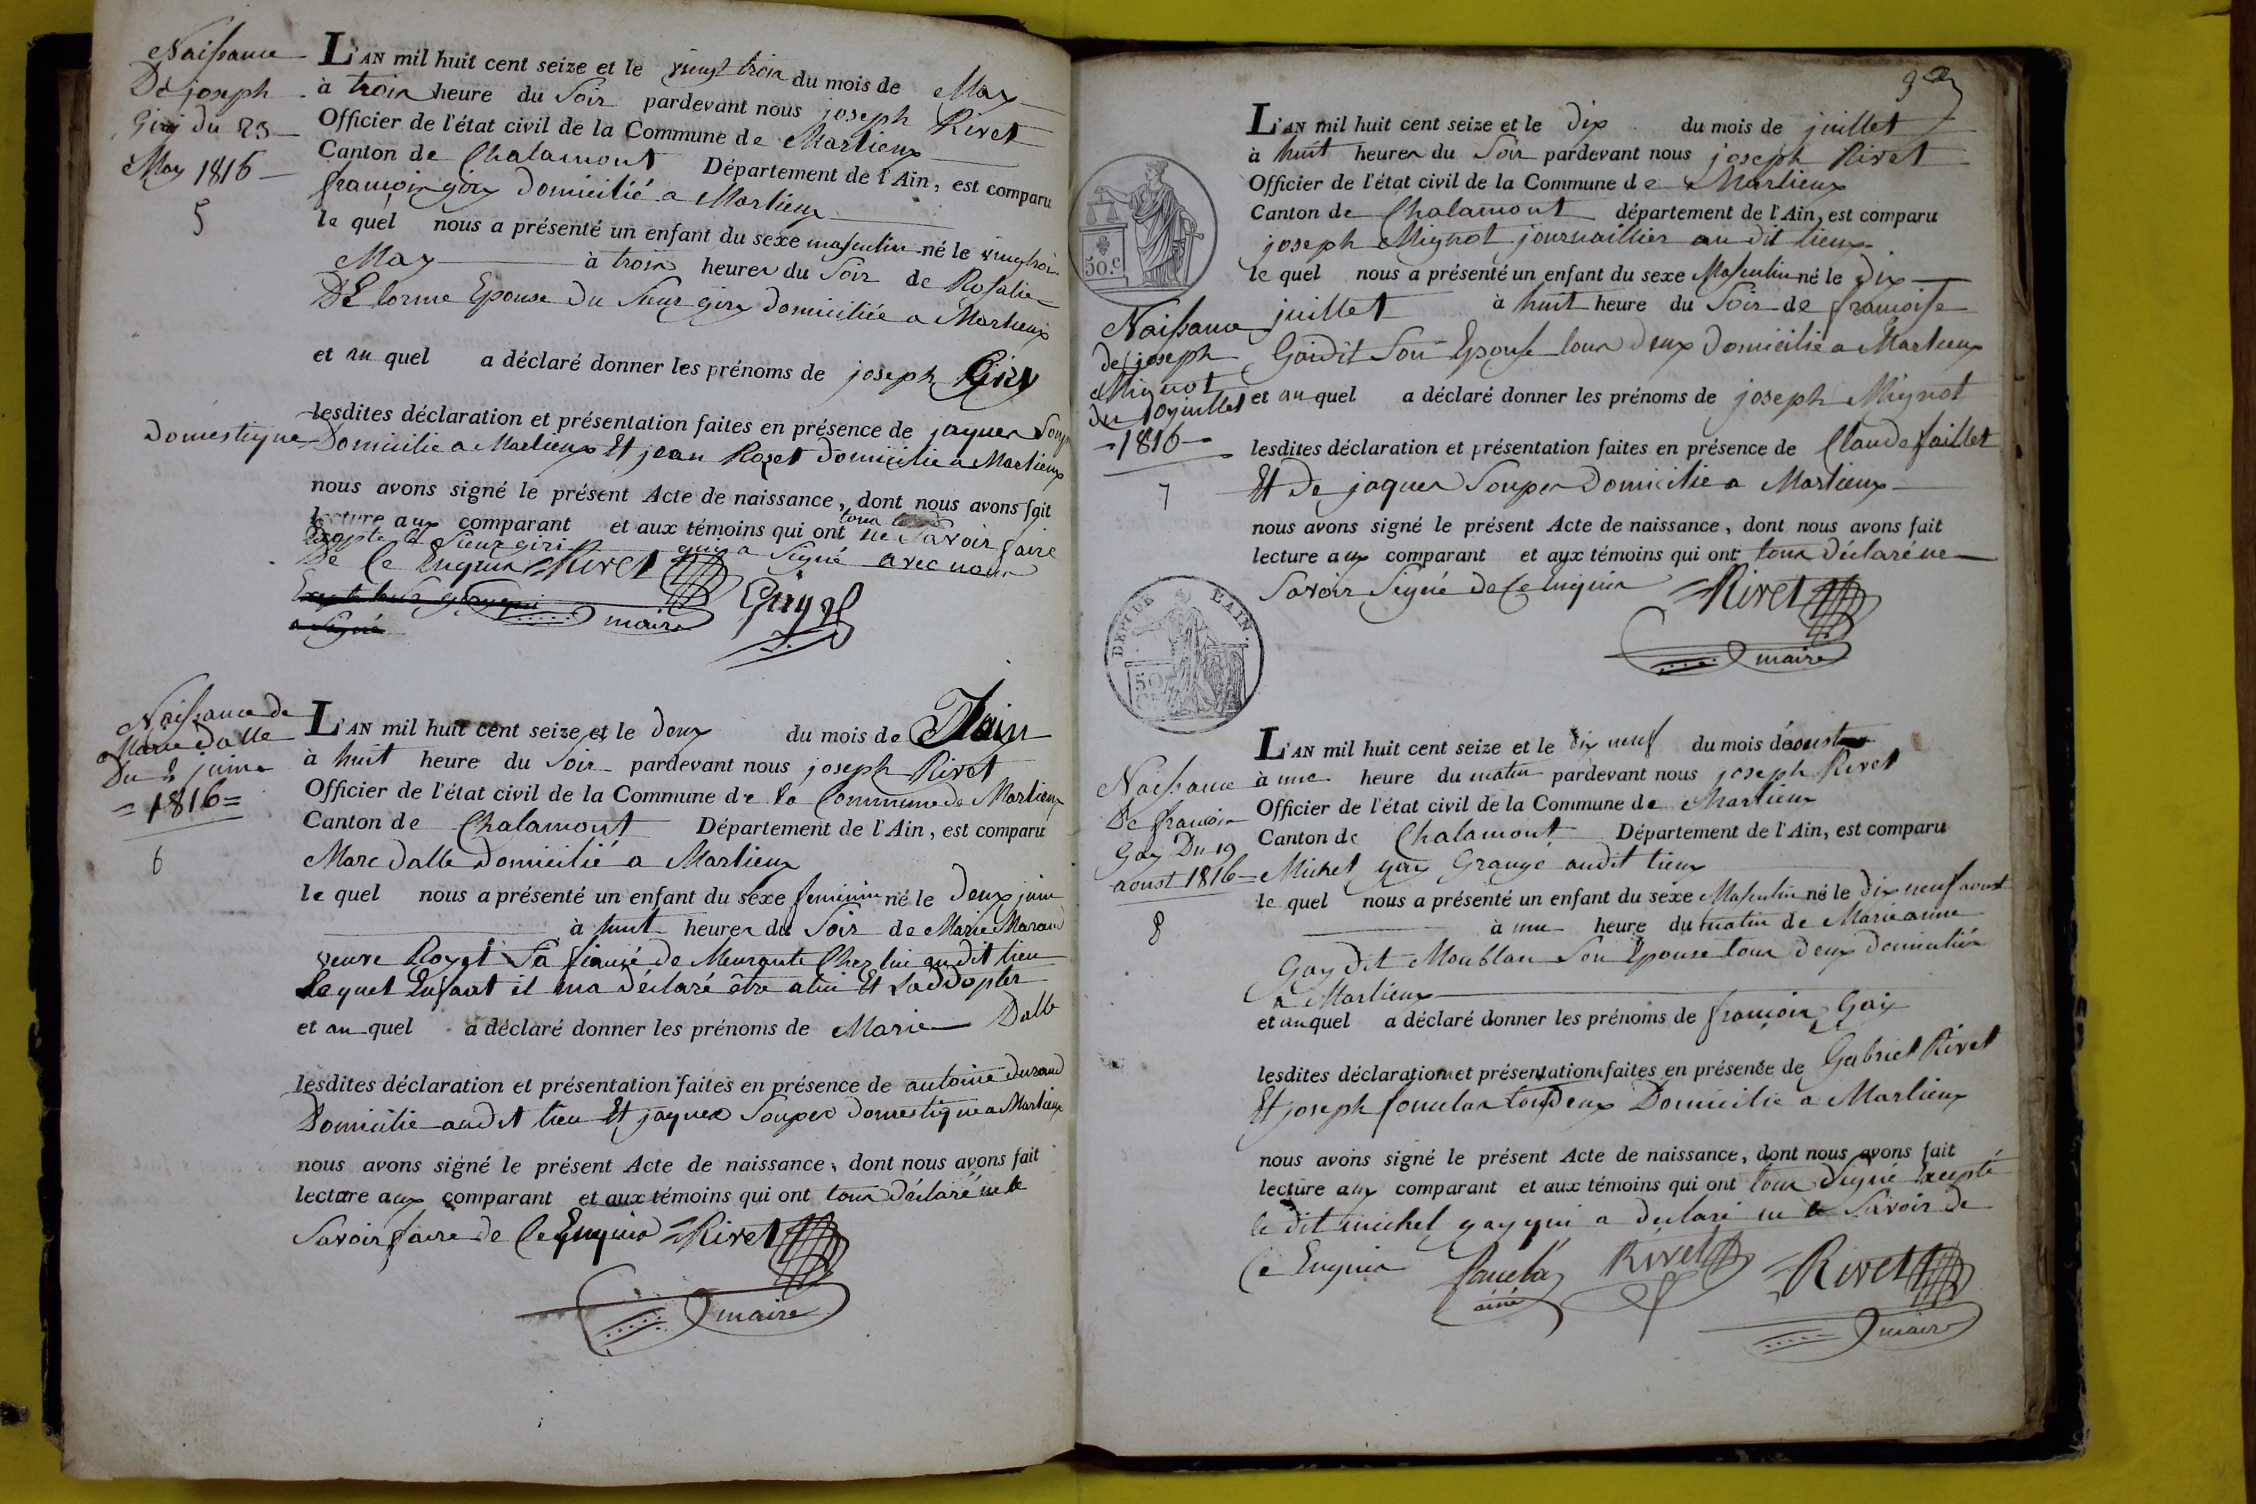 Naissance
De joseph
Giri du 23
May 1816
5
L'AN mil huit cent seize et le vingt trois du mois de May
à trois heure du Soir pardevant nous joseph Rivet
Officier de l'état civil de la Commune de Marlieux
Canton de Chalamont Département de l'Ain, est comparu
francois giry domicilié a Marlieux
le quel nous a présenté un enfant du sexe masculin né le vingtrois
May à trois heures du Soir de Rosalie
DE lorme Epouse du Sieur giry domiciliée a Marlieux
et au quel a déclaré donner les prénoms de joseph Giry
lesdites déclaration et présentation faites en présence de jaques Soupe
domestique Domicilie a Marlieux Et jean Rozet domicilie a Marlieux
nous avons signé le présent Acte de naissance, dont nous avons fait
lecture aux comparant et aux témoins qui ont tous ne Savoir faire
Excepte le Sieur giri qui a Signé avec nous
De Ce Enquis Rivet
maire
Giry
a Signé
Naissance de
Marie Dalle
Du 2 juin
=1816=
6
L'AN mil huit cent seize et le deux du mois de Juin
à huit heure du Soir pardevant nous joseph Rivet
Officier de l'état civil de la Commune de la Commune de Marlieux
Canton de Chalamont Département de l'Ain, est comparu
Marc Dalle domicilié a Marlieux
le quel nous a présenté un enfant du sexe feminin né le Deux juin
à huit heures du Soir de Marie Maraud
veuve Royet Sa fiancé de Meurante Chez lui au dit lieu
Lequel Enfant il ma déclaré être a lui Et Laddopter
et au quel a déclaré donner les prénoms de Marie Dalle
lesdites déclaration et présentation faites en présence de antoine durand
Domicilie audit lieu Et jaques Soupes domestique a Marlieux
nous avons signé le présent Acte de naissance, dont nous avons fait
lecture aux comparant et aux témoins qui ont tous déclaré ne
Savoir faire de Ce Enquis Rivet
maire
L'AN mil huit cent seize et le dix du mois de juillet
à huit heures du Soir pardevant nous joseph Rivet
Officier de l'état civil de la Commune de Marlieux
Canton de Chalamont département de l'Ain, est comparu
joseph Mignot journaillier au dit lieux
50.c
le quel nous a présenté un enfant du sexe Masculin né le dix
juillet à huit heure du Soir de francoise
Naissance
de joseph
Mignot
du 10 juillet
-1816-
7
Goidit Son Epouse tous deux domicilie a Marlieux
et au quel a déclaré donner les prénoms de joseph Mignot
lesdites déclaration et présentation faites en présence de Claude faillet
Et De jaques Soupes Domicilie a Marlieux
nous avons signé le présent Acte de naissance, dont nous avons fait
lecture aux comparant et aux témoins qui ont tous déclaré ne
Savoir Signé de Ce Enquis Rivet
maire
DEPT DE L'AIN.
50
Naissance
De francois
Gay Du 19
aoust 1816
8
L'AN mil huit cent seize et le dix neuf du mois d'aoust
à une heure du matin pardevant nous joseph Rivet
Officier de l'état civil de la Commune de Marlieux
Canton de Chalamont Département de l'Ain, est comparu
Michel gay Granger audit lieux
le quel nous a présenté un enfant du sexe Masculin né le dix neuf aoust
à une heure du matin de Marie anne
Gay dit Moublan Son Epouse tous deux domiciliés
a Marlieux
et au quel a déclaré donner les prénoms de francois Gay
lesdites déclaration et présentation faites en présence de Gabriel Rivet
Et joseph tous Deux Domicilie a Marlieux
nous avons signé le présent Acte de naissance, dont nous avons fait
lecture aux comparant et aux témoins qui ont tous Signé Excepté
le dit michel gay qui a declaré ne Savoir de
Ce Enquis
ainé
Rivet
Rivet
maire